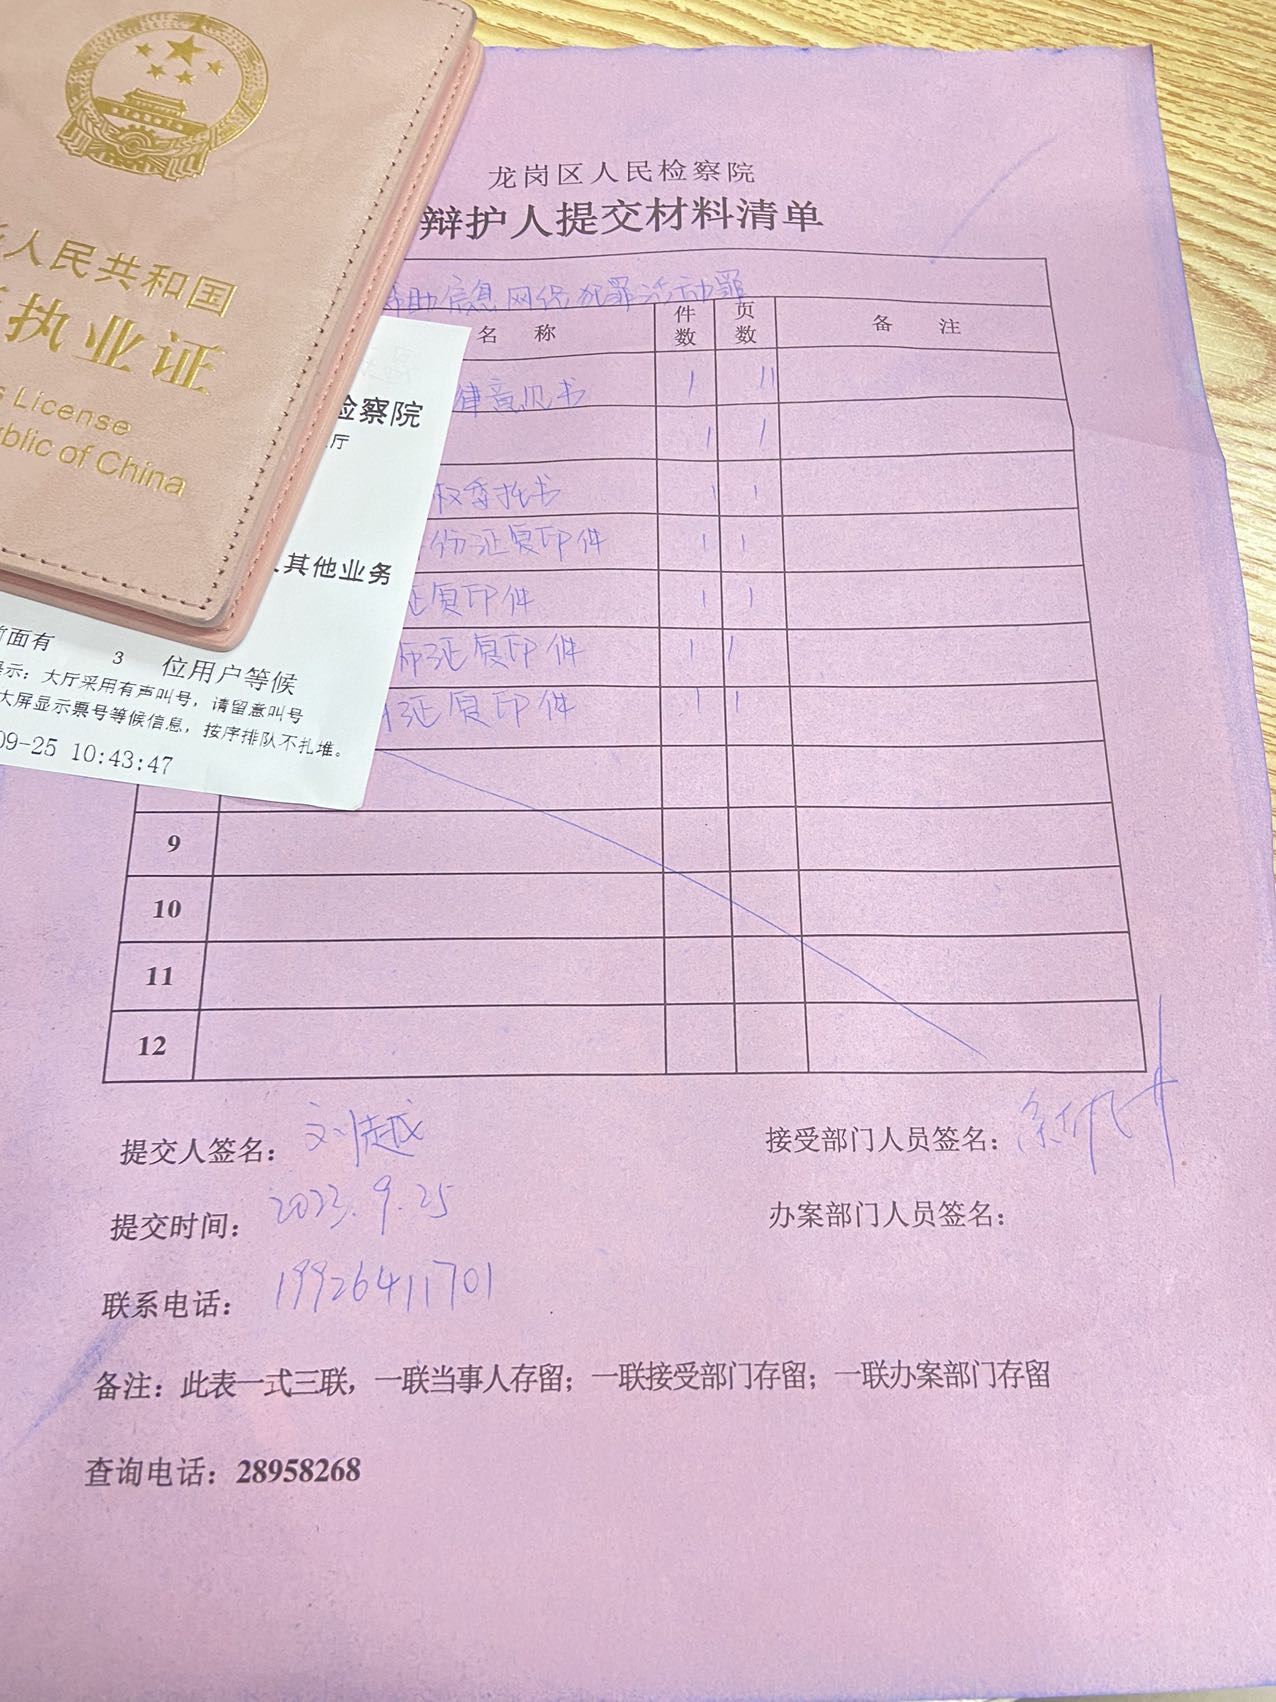 人民共和国
执业证
s License
blic of China
检察院
厅
其他业务
前面有 3 位用户等候
示：大厅采用有声叫号，请留意叫号
大屏显示票号等候信息，按序排队不扎堆。
09-25 10:43:47
龙岗区人民检察院
辩护人提交材料清单
帮助信息网络犯罪活动罪
名 称 件数 页数 备 注
律意见书 1 11
1 1
权委托书 1 1
份证复印件 1 1
证复印件 1 1
证复印件 1 1
证复印件 1 1
9
10
11
12
提交人签名：
接受部门人员签名：
提交时间：2023.9.25
办案部门人员签名：
联系电话：19926411701
备注：此表一式三联，一联当事人存留；一联接受部门存留；一联办案部门存留
查询电话：28958268